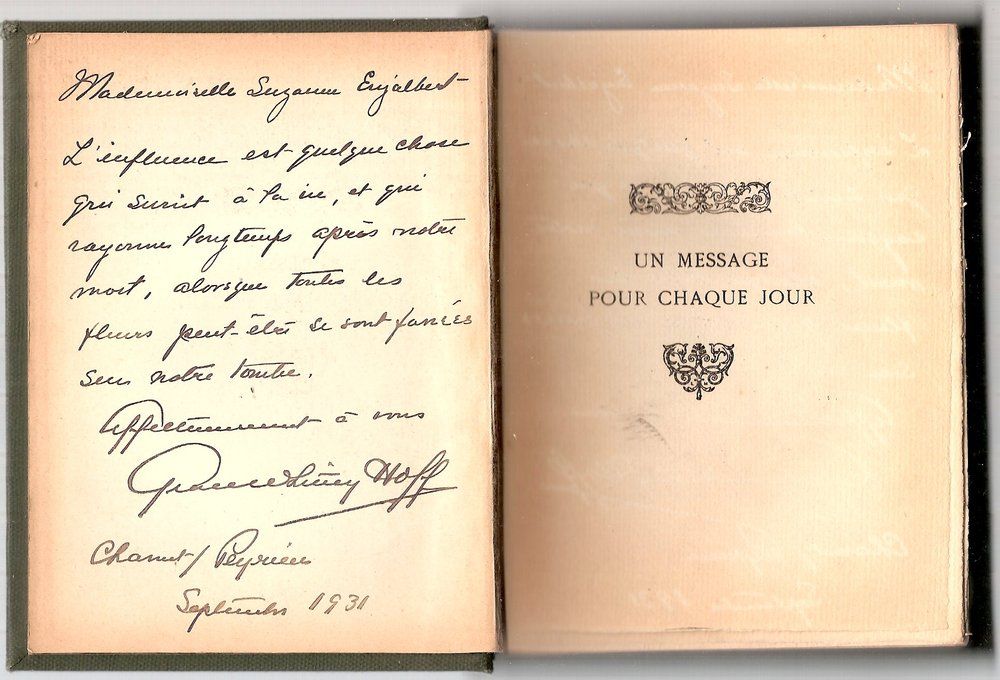 Mademoiselle Suzanne Enjalbert
L'influence est quelque chose
qui survit à la vie, et qui
rayonne longtemps après notre
mort, alorsque toutes les
fleurs peut-être se sont fanées
sur notre tombe.
Affectueusement à vous
Grace Whitney Hoff
Peyrieu
Septembre 1931
UN MESSAGE
POUR CHAQUE JOUR